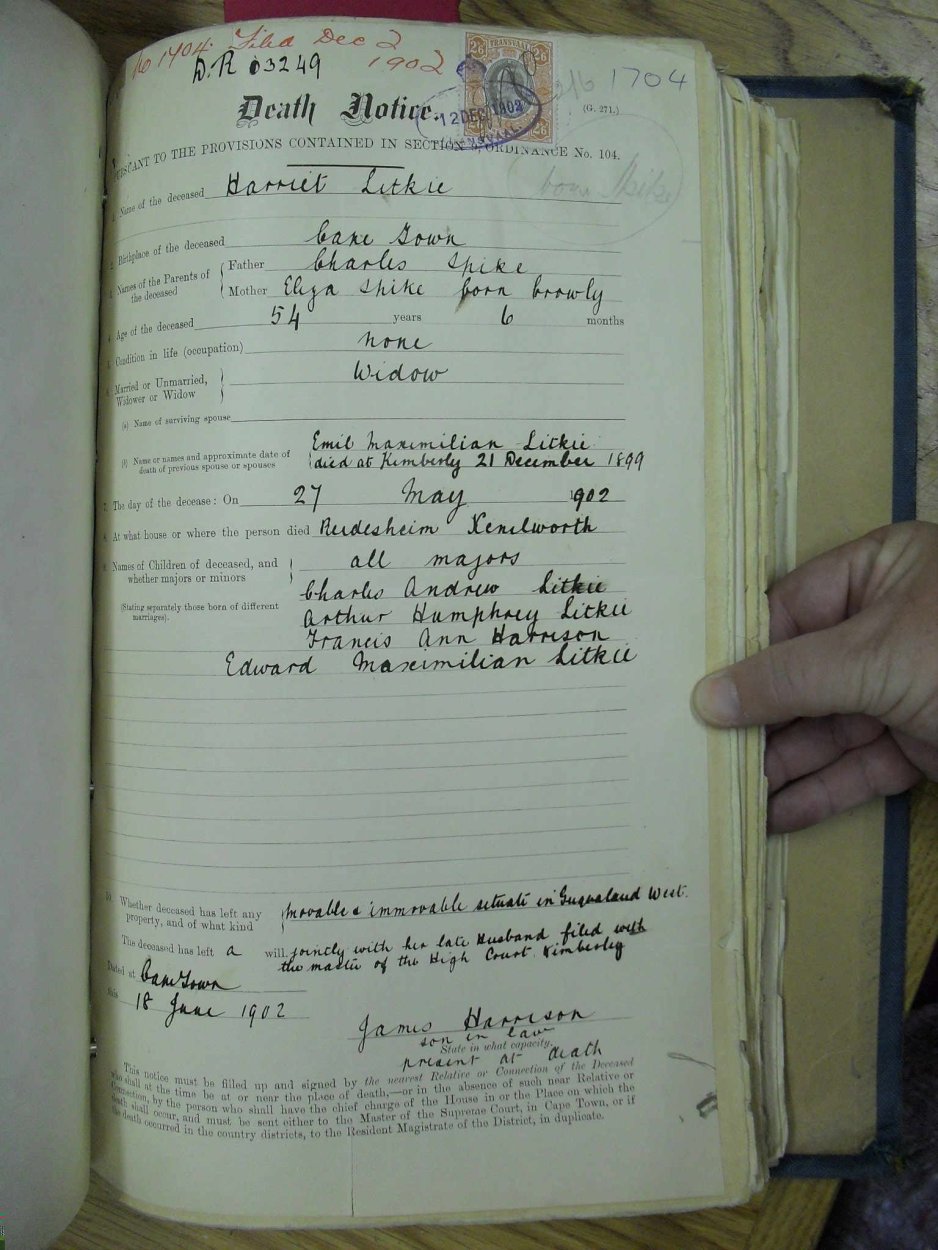 No 1704. Filed Dec 2
1902
D.R 03249
1704
TRANSVAAL
2/6 2/6
12 DEC 1902
Death Notice.
(G. 271.)
PURSUANT TO THE PROVISIONS CONTAINED IN SECTION ORDINANCE No. 104.
born Spike
1. Name of the deceased Harriet Litkie
2. Birthplace of the deceased Cape Town
3. Names of the Parents of the deceased { Father Charles Spike
Mother Eliza Spike born Crowly
4. Age of the deceased 54 years 6 months
5. Condition in life (occupation) none
6. Married or Unmarried, Widower or Widow } Widow
(a) Name of surviving spouse
(b) Name or names and approximate date of death of previous spouse or spouses Emil Maximilian Litkie
died at Kimberly 21 December 1899
7. The day of the decease: On 27 May 1902
8. At what house or where the person died Rudesheim Kenilworth
9. Names of Children of deceased, and whether majors or minors } all majors
(Stating separately those born of different marriages).
Charles Andrew Litkie
Arthur Humphrey Litkie
Francis Ann Harrison
Edward Maximilian Litkie
10. Whether deceased has left any property, and of what kind { Movable & immovable situate in Griqualand West.
The deceased has left a will jointly with her late Husband filed with
the master of the High Court Kimberley
Dated at Cape Town
this 18 June 1902
James Harrison
son in law
State in what capacity.
present at death
This notice must be filled up and signed by the nearest Relative or Connection of the Deceased
who shall at the time be at or near the place of death,—or in the absence of such near Relative or
Connection, by the person who shall have the chief charge of the House in or the Place on which the
death shall occur, and must be sent either to the Master of the Supreme Court, in Cape Town, or if
the death occurred in the country districts, to the Resident Magistrate of the District, in duplicate.